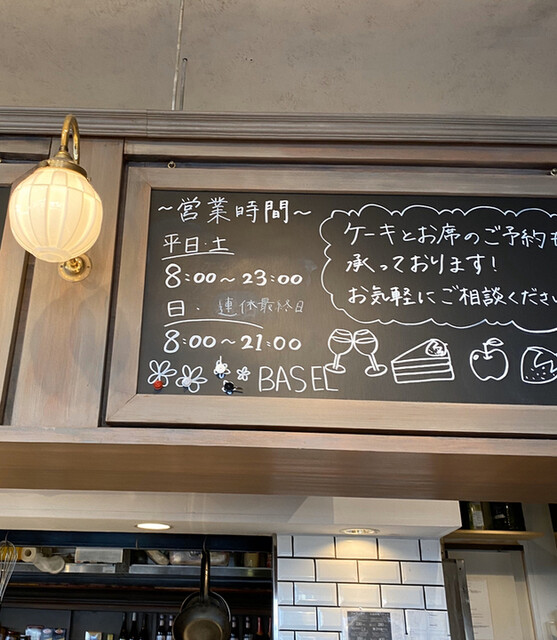 ～営業時間～
平日・土
8:00～23:00
日・連休最終日
8:00～21:00
BASEL
ケーキとお席のご予約も
承っております！
お気軽にご相談ください